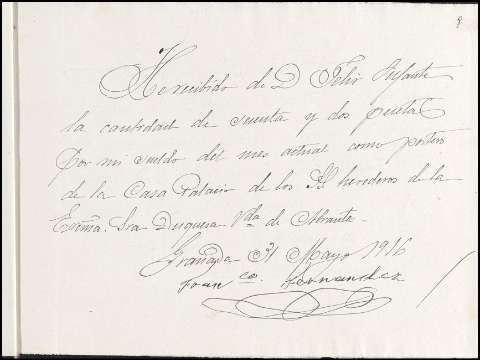 8
He recibido de D Felix Infante
la cantidad de sesenta y dos pesetas
Por mi sueldo del mes actual como portero
de la Casa Palacio de los SS herederos de la
ExCma. Sra Duquesa Vda de Abrantes
Granada 31 Mayo 1916
Fran co. Fernandez